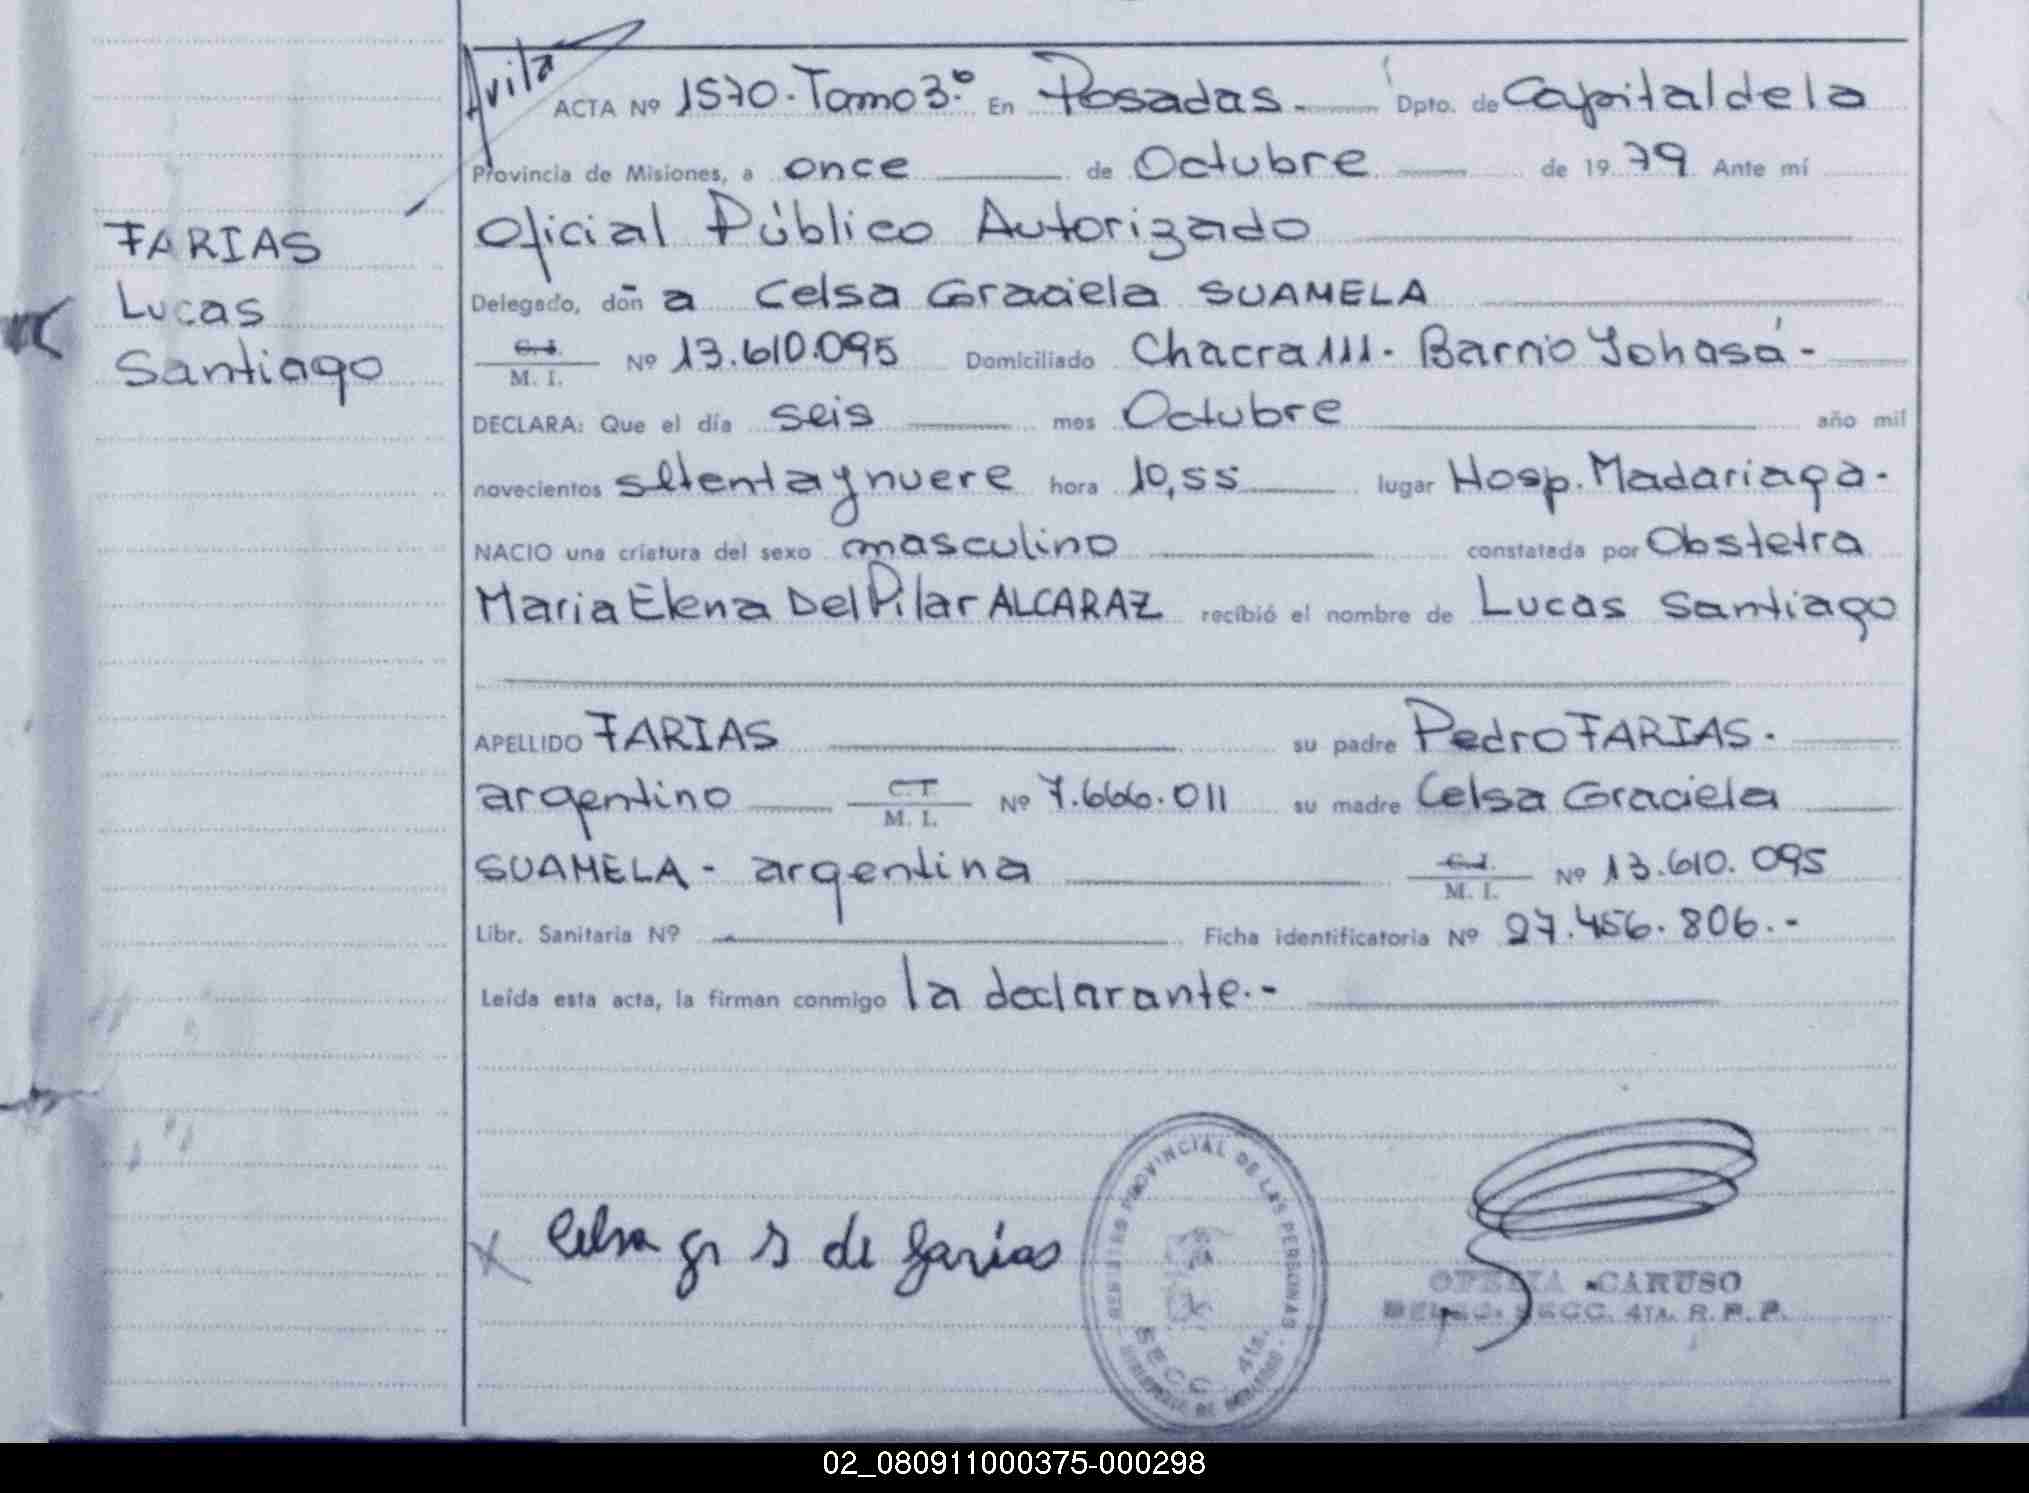 Avila
ACTA Nº 1570. Tomo 3.º En Posadas. Dpto. de Capital de la
Provincia de Misiones, a once de Octubre de 1979 Ante mí
Oficial Público Autorizado
FARIAS
Lucas
Santiago
Delegado, don a Celsa Graciela SUAMELA
C. I.
M. I.
Nº 13.610.095 Domiciliado Chacra 111. Barrio Yohasá -
DECLARA: Que el día seis mes Octubre año mil
novecientos setenta y nueve hora 10,55 lugar Hosp. Madariaga.
NACIO una criatura del sexo masculino constatada por Obstetra
Maria Elena Del Pilar ALCARAZ recibió el nombre de Lucas Santiago
APELLIDO FARIAS su padre Pedro FARIAS.
argentino C. I. M. I. Nº 7.666.011 su madre Celsa Graciela
SUAMELA - argentina C. I. M. I. Nº 13.610.095
Libr. Sanitaria Nº Ficha identificatoria Nº 27.456.806.-
Leída esta acta, la firman conmigo la declarante.-
Celsa G S de Farias
PROVINCIAL DE LAS PERSONAS
SECC. 4ta.
OFELIA CARUSO
DELEG. SECC. 4TA. R. P. P.
02_080911000375-000298